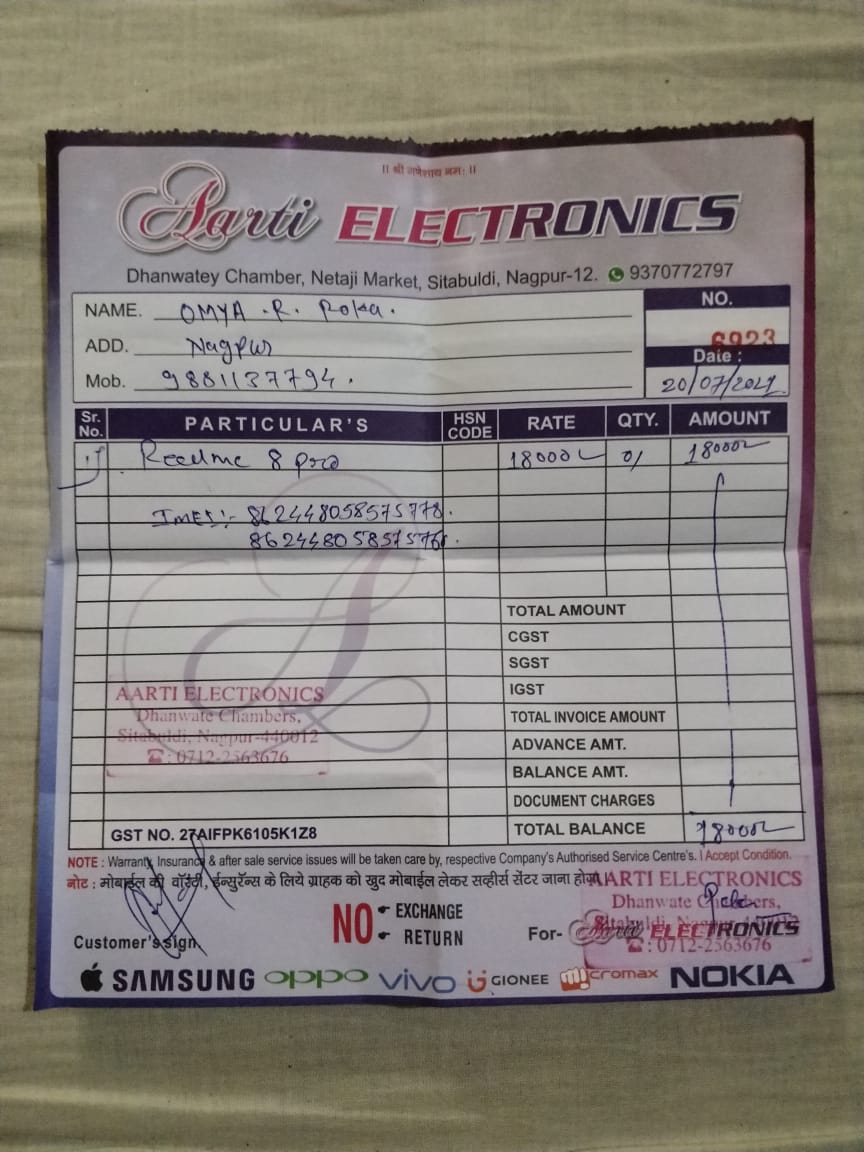 || श्री गणेशाय नमः ||
Aarti ELECTRONICS
Dhanwatey Chamber, Netaji Market, Sitabuldi, Nagpur-12. 9370772797
NAME. OMYA .R. Poka.
ADD. Nagpur
Mob. 9881137794.
NO.
6923
Date :
20/07/2021
Sr. No. PARTICULAR'S HSN CODE RATE QTY. AMOUNT
1) Realme 8 pro 18000 01 18000
IMEI:- 862448058575778.
862448058575760.
TOTAL AMOUNT
CGST
SGST
IGST
TOTAL INVOICE AMOUNT
ADVANCE AMT.
BALANCE AMT.
DOCUMENT CHARGES
TOTAL BALANCE 18000
AARTI ELECTRONICS
Dhanwate Chambers,
Sitabuldi, Nagpur-440012
☎: 0712-2563676
GST NO. 27AIFPK6105K1Z8
NOTE : Warranty, Insurance & after sale service issues will be taken care by, respective Company's Authorised Service Centre's. I Accept Condition.
नोट : मोबाईल की वॉरंटी, ईन्सुरॅन्स के लिये ग्राहक को खुद मोबाईल लेकर सर्व्हीर्स सेंटर जाना होगा
NO EXCHANGE
RETURN
Customer's sign.
For- Aarti ELECTRONICS
AARTI ELECTRONICS
Dhanwate Chambers,
Sitabuldi, Nagpur-440012
☎: 0712-2563676
SAMSUNG oppo vivo GIONEE micromax NOKIA